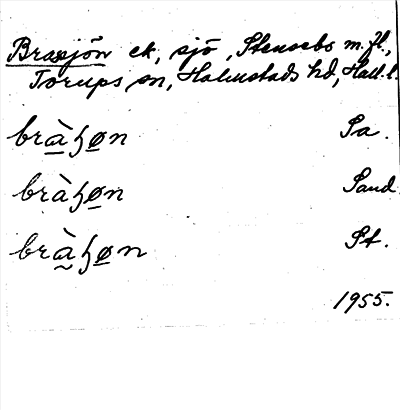 Brasjön ek, sjö, Stensebo m.fl.,
Torups sn, Halmstads hd, Hall. l.
bràɧøn Sa.
bràɧøn Sand
bràɧøn St.
1955.